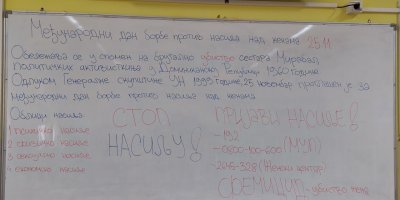 Међународни дан борбе против насиља над женама 25.11.
Обележава се у спомен на брутално убиство сестара Мирабал,
политичких активисткиња у Доминиканској Републици 1960. године
Одлуком Генералне скупштине УН 1999. године 25. новембар проглашен је за
међународни дан борбе против насиља над женама
Облици насиља
1 психичко насиље
2 физичко насиље
3 сексуално насиље
4 економско насиље
СТОП
НАСИЉУ!
ПРИЈАВИ НАСИЉЕ!
- 192
- 0800-100-600 (МУП)
- 2645-328 (Женски центар)
ФЕМИЦИД - убиство жена